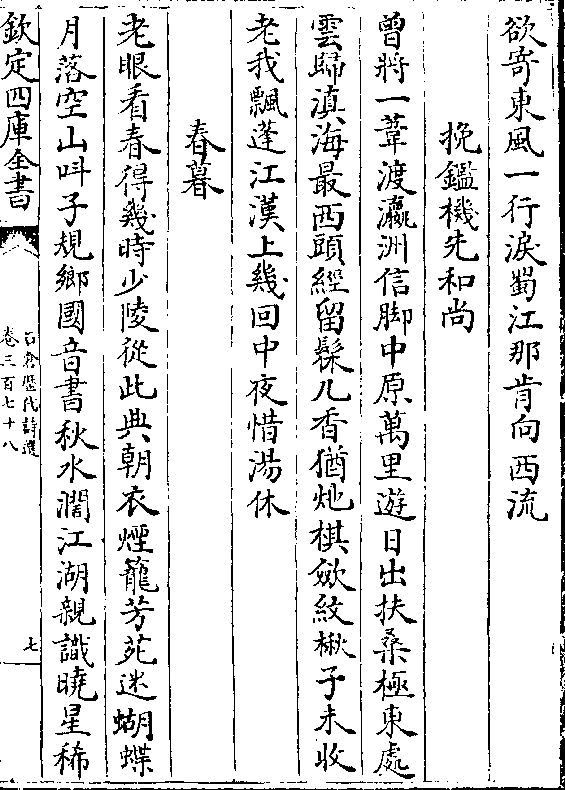 欲寄東風一行淚蜀江那肯向西流
挽鑑機先和尚
曾將一葦渡瀛洲信脚中原萬里遊日出扶桑極東處
雲歸滇海最西頭經留髹几香猶灺棋斂紋楸子未收
老我飄蓬江漢上幾回中夜惜湯休
春暮
老眼看春得幾時少陵從此典朝衣煙籠芳苑迷蝴蝶
月落空山呌子規鄉國音書秋水濶江湖親識曉星稀
欽定四庫全書
石倉歷代詩選
卷三百七十八
七